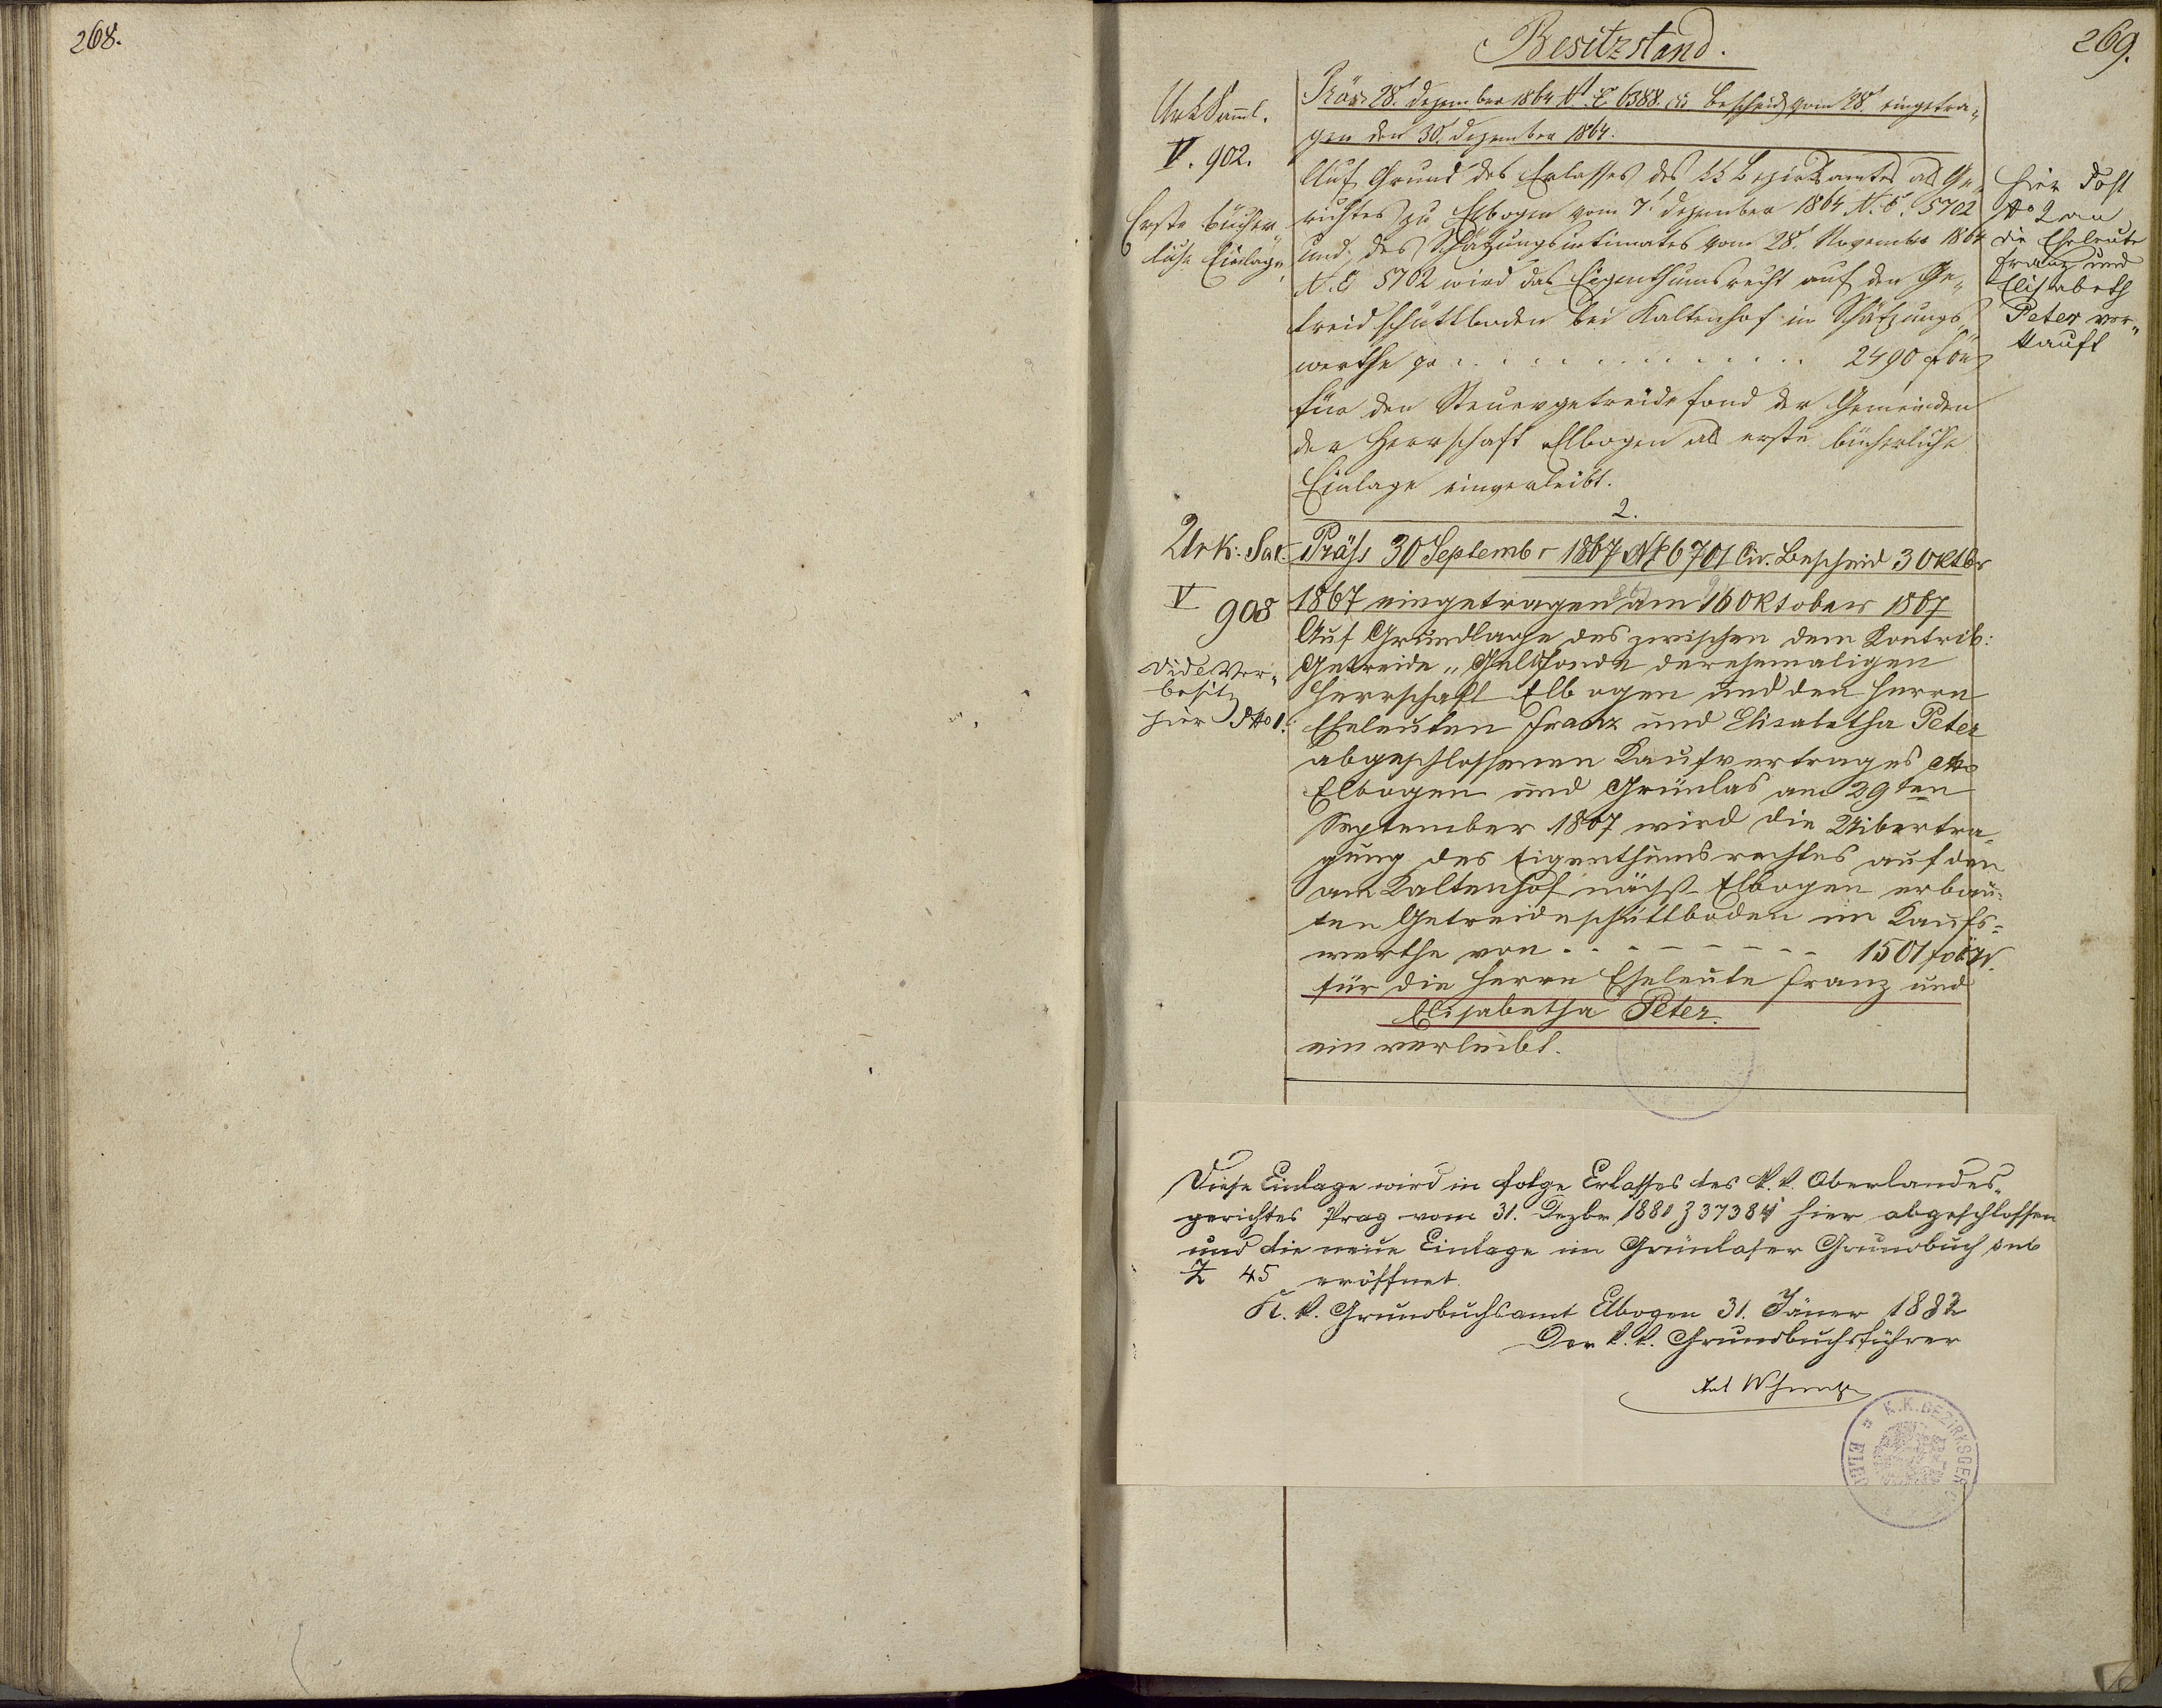 268.
269.
Besitzstand.
UrkSaml.
V. 902.
Erste bücher„
liche Einlage.
Präs 28t. Dezember 1864 N. E. 6388. Bescheid vom 28t. eingetra„
gen den 30t. Dezember 1864.
Auf Grund des Erlasses des kk Bezirksamtes als Ge„
richtes zu Elbogen vom 7t. Dezember 1864 N. E. 5702
und des Schätzungsintimates vom 28t. November 1864
N. E 5702 wird das Eigenthumsrecht auf den Ge„
treidschüttboden bei Kaltenhof im Schätzungs„
werthe pr . . . . . . . . . . 2490 f öW
für den Steuergetreidefond der Gemeinden
der Herrschaft Elbogen als erste bücherliche
Einlage einverleibt.
Hier Post
No 2 an
die Eheleute
Franz und
Elisabeth
Peter ver„
kauft
2.
Urk: Sat.
V
908
Vide Vor„
besitz
hier No 1.
Präs 30 September 1867 No 6701 Civ. Bescheid 3 Oktbr
1867 eingetragen am 16 Oktober 1867
Auf Grundlage des zwischen dem Kontrib:
Getreide„ Geldfonde der ehemaligen
Herrschaft Elbogen und den Herrn
Eheleuten Franz und Elisabetha Peter
abgeschlossenen Kaufvertrages dto
Elbogen und Grünlas am 29ten
September 1867 wird die Uibertra„
gung des Eigenthumsrechtes auf den
am Kaltenhof nächst Elbogen erbau„
ten Getreideschüttboden im Kaufs=
werthe von . . . - - - - - - 1501 f öW.
für die Herrn Eheleute Franz und
Elisabetha Peter.
ein verleibt.
Diese Einlage wird in folge Erlasses des k. k. Oberlandes„
gerichtes Prag vom 31. Dezbr 1881 Z 37384 hier abgeschlossen
und die neue Einlage im Grünlaser Grundbuch sub
45 eröffnet.
K. k. Grundbuchsamt Elbogen 31. Jäner 1882
Der k. k. Grundbuchsführer
K.K. BEZIRKSGER
ELB